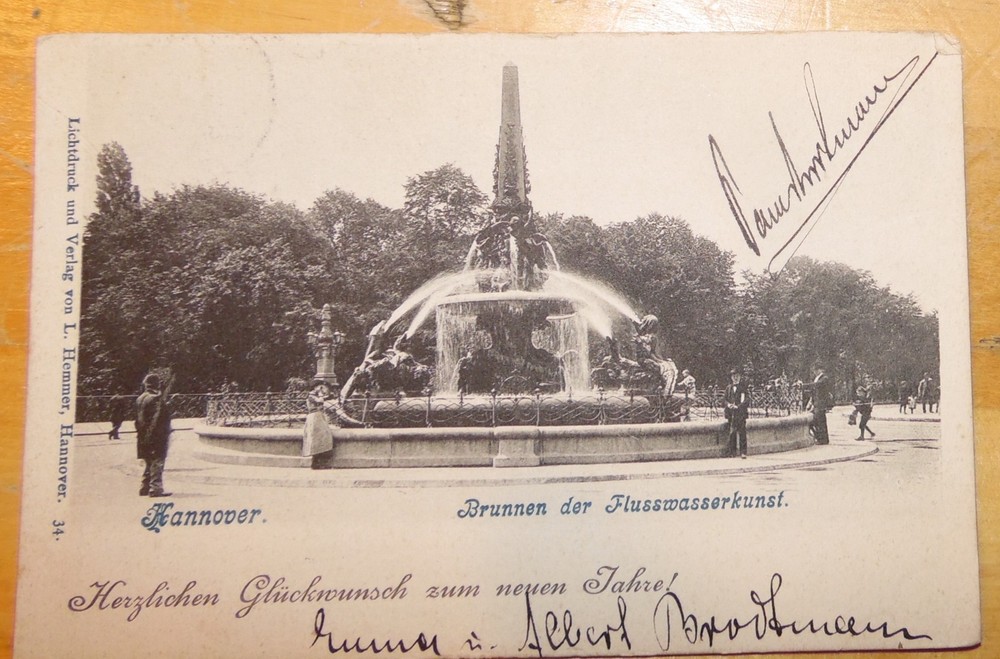 Lichtdruck und Verlag von L. Hemmer, Hannover. 34.
Hannover.
Brunnen der Flusswasserkunst.
Herzlichen Glückwunsch zum neuen Jahre!
Emma u. Albert Brodtmann